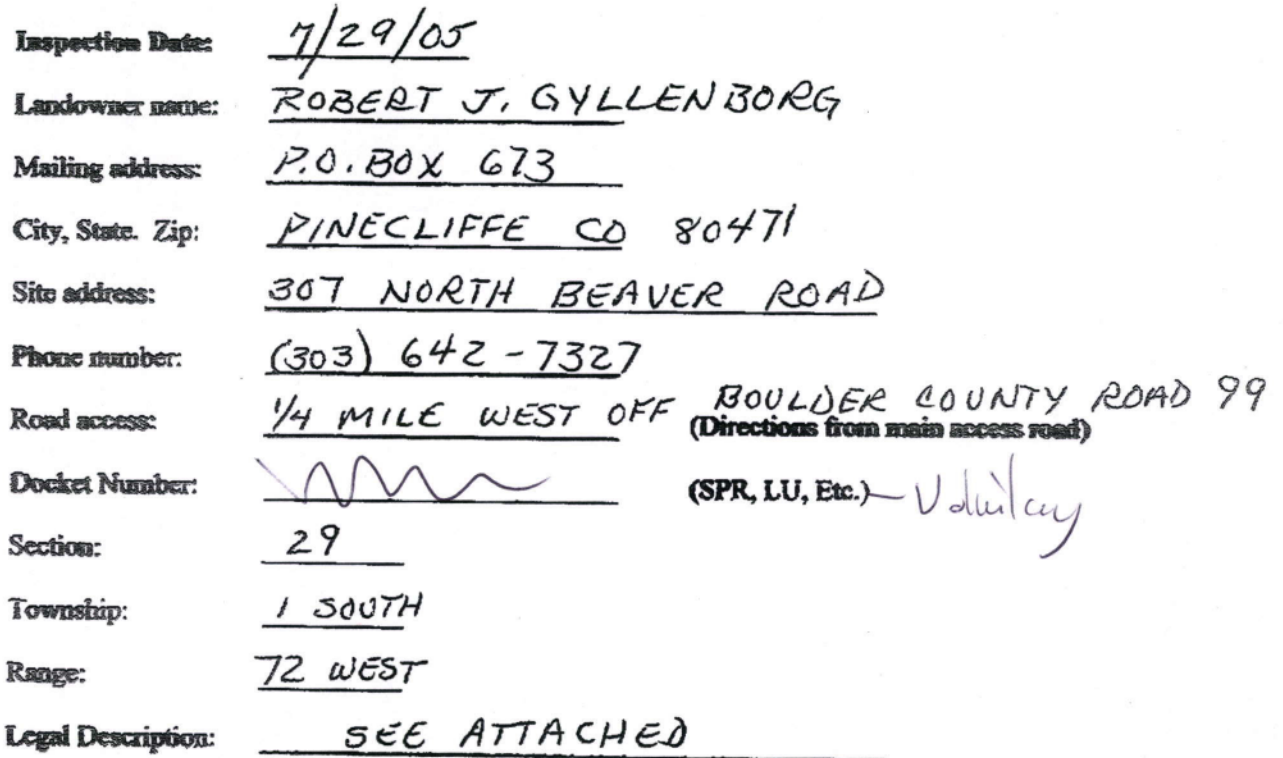 Inspection Date: 7/29/05
Landowner name: ROBERT J. GYLLENBORG
Mailing address: P.O. BOX 673
City, State. Zip: PINECLIFFE CO 80471
Site address: 307 NORTH BEAVER ROAD
Phone number: (303) 642-7327
Road access: 1/4 MILE WEST OFF BOULDER COUNTY ROAD 99
(Directions from main access road)
Docket Number: (SPR, LU, Etc.)
Section: 29
Township: 1 SOUTH
Range: 72 WEST
Legal Description: SEE ATTACHED